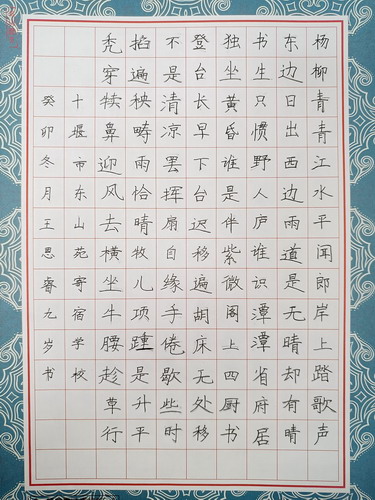 杨柳青青江水平闻郎岸上踏歌声
东边日出西边雨道是无晴却有晴
书生只惯野人庐谁识潭潭省府居
独坐黄昏谁是伴紫微阁上四厨书
登台长早下台迟移遍胡床无处移
不是清凉罢挥扇自缘手倦歇些时
掐遍秧畴雨恰晴牧儿项踵是升平
秃穿犊鼻迎风去横坐牛腰趁草行
十堰市东山苑寄宿学校
癸卯冬月王思睿九岁书